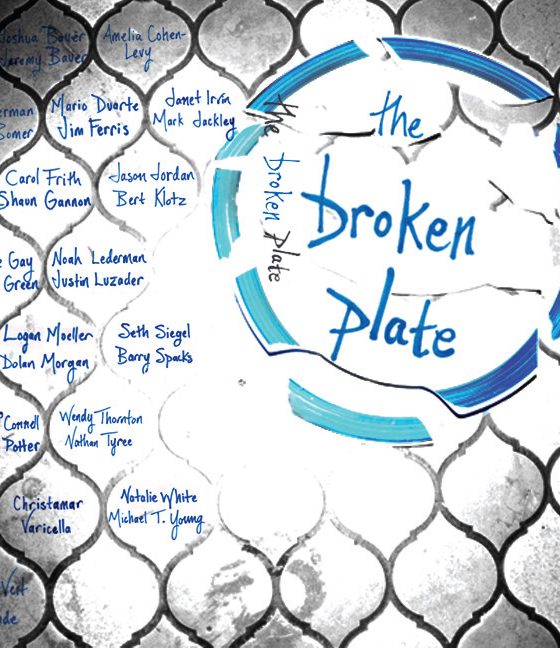 Joshua Bauer
Jeremy Bauer
Amelia Cohen-
Levy
Mario Duarte
Jim Ferris
Janet Irvin
Mark Jackley
Carol Frith
Shaun Gannon
Jason Jordan
Bert Klotz
Gay
Green
Noah Lederman
Justin Luzader
Logan Moeller
Dolan Morgan
Seth Siegel
Barry Spacks
Potter
Wendy Thornton
Nathan Tyree
Christamar
Varicella
Natalie White
Michael T. Young
the broken plate
the
broken
plate